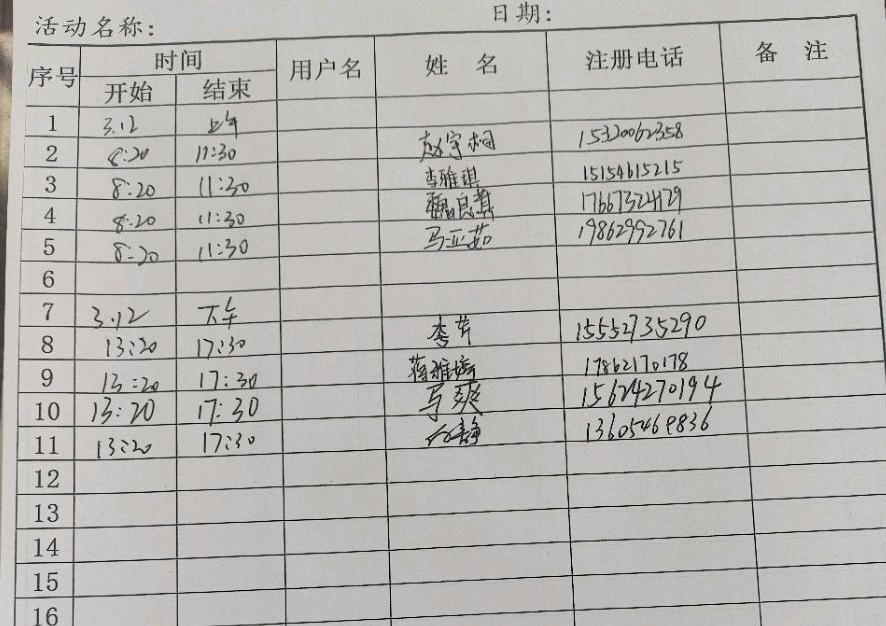 活动名称: 日期:
序号 时间 用户名 姓 名 注册电话 备 注
开始 结束
1 3.12 上午
2 8:20 11:30 赵宇桐 15320062358
3 8:20 11:30 李雅琪 15154615215
4 8:20 11:30 17667324179
5 8:20 11:30 马亚茹 19862992761
6
7 3.12 下午
8 13:20 17:30 15552735290
9 13:20 17:30 17862170178
10 13:20 17:30 马爽 15624270194
11 13:20 17:30 13605469836
12
13
14
15
16